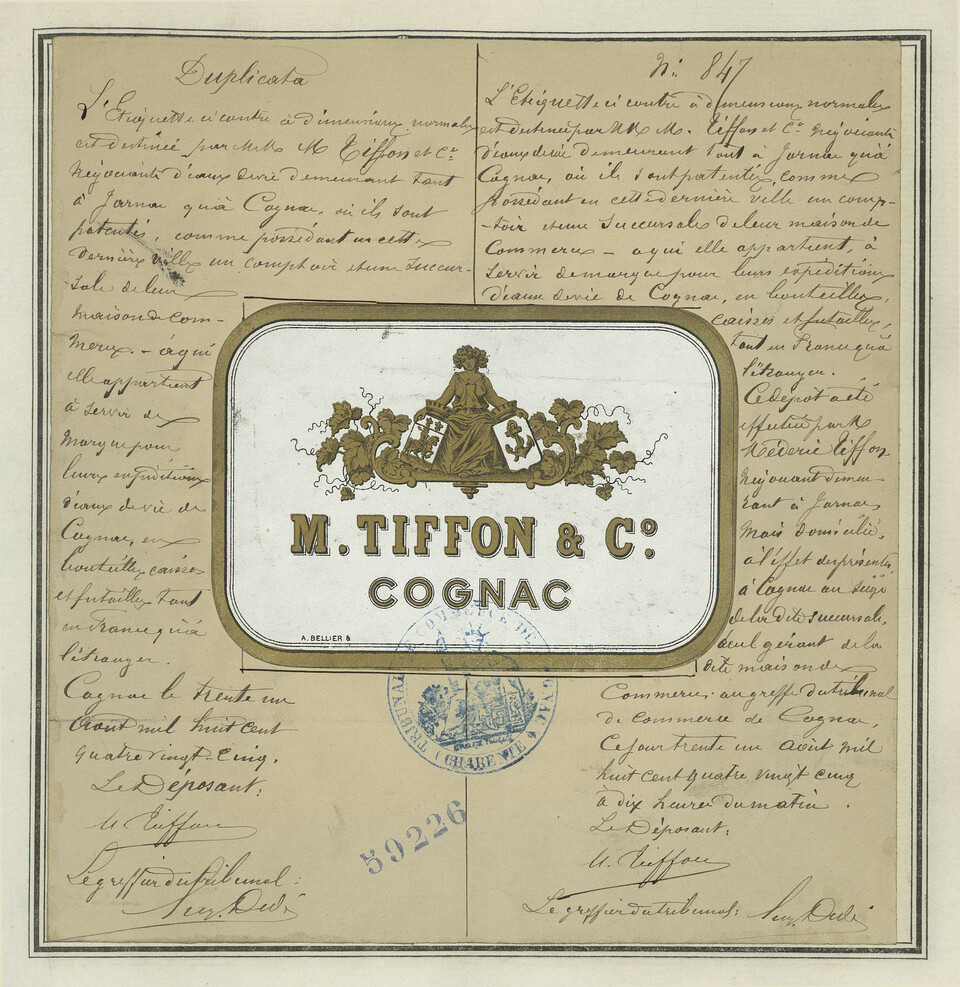 Duplicata
L'Etiquette ci contre à dimensions normales
est destinée par MM. M. Tiffon et Cie
Négociants d'eaux de vie demeurant tant
à Jarnac qu'à Cognac, où ils sont
patentés, comme possédant en cette
dernière ville un comptoir et une succur-
sale de leur
maison de Com-
merce. - à qui
elle appartient
à servir de
marque pour
leurs expéditions
d'eaux de vie de
Cognac, en
bouteilles, caisses
et futailles tant
en France qu'à
l'étranger.
Cognac le trente un
Août mil huit cent
quatre vingt-cinq.
Le Déposant:
M Tiffon
Le greffier du tribunal:
No. 847
L'Etiquette ci contre à dimensions normales
est destinée par MM. M. Tiffon et Cie Négociants
d'eaux de vie demeurant tant à Jarnac qu'à
Cognac, où ils sont patentés, comme
possédant en cette dernière ville un comp-
-toir et une Succursale de leur maison de
Commerce - à qui elle appartient, à
servir de marque pour leurs expéditions
d'eaux de vie de Cognac, en bouteilles,
caisses et futailles,
tant en France qu'à
l'étranger.
Ce dépôt a été
effectué par M
Médéric Tiffon
Négociant demeu-
rant à Jarnac
mais domicilié,
à l'effet des présentes,
à Cognac au siège
de la dite succursale,
seul gérant de la
dite maison de
Commerce, au greffe du tribunal
de Commerce de Cognac,
ce jour trente un Août mil
huit cent quatre vingt cinq
à dix heures du matin.
Le Déposant:
M. Tiffon
Le greffier du tribunal:
M. TIFFON & Cº.
COGNAC
A. BELLIER &
TRIBUNAL DE COMMERCE DE COGNAC
(CHARENTE)
59226